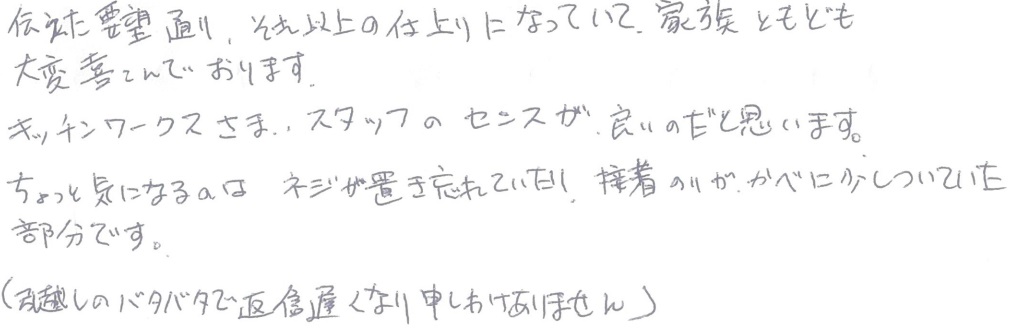 伝えた要望通り、それ以上の仕上りになっていて、家族ともども
大変喜こんでおります。
キッチンワークスさま、スタッフのセンスが良いのだと思います。
ちょっと気になるのは ネジが置き忘れていたり、接着のりが、かべに少しついていた
部分です。
(引越しのバタバタで返信遅くなり申しわけありません)